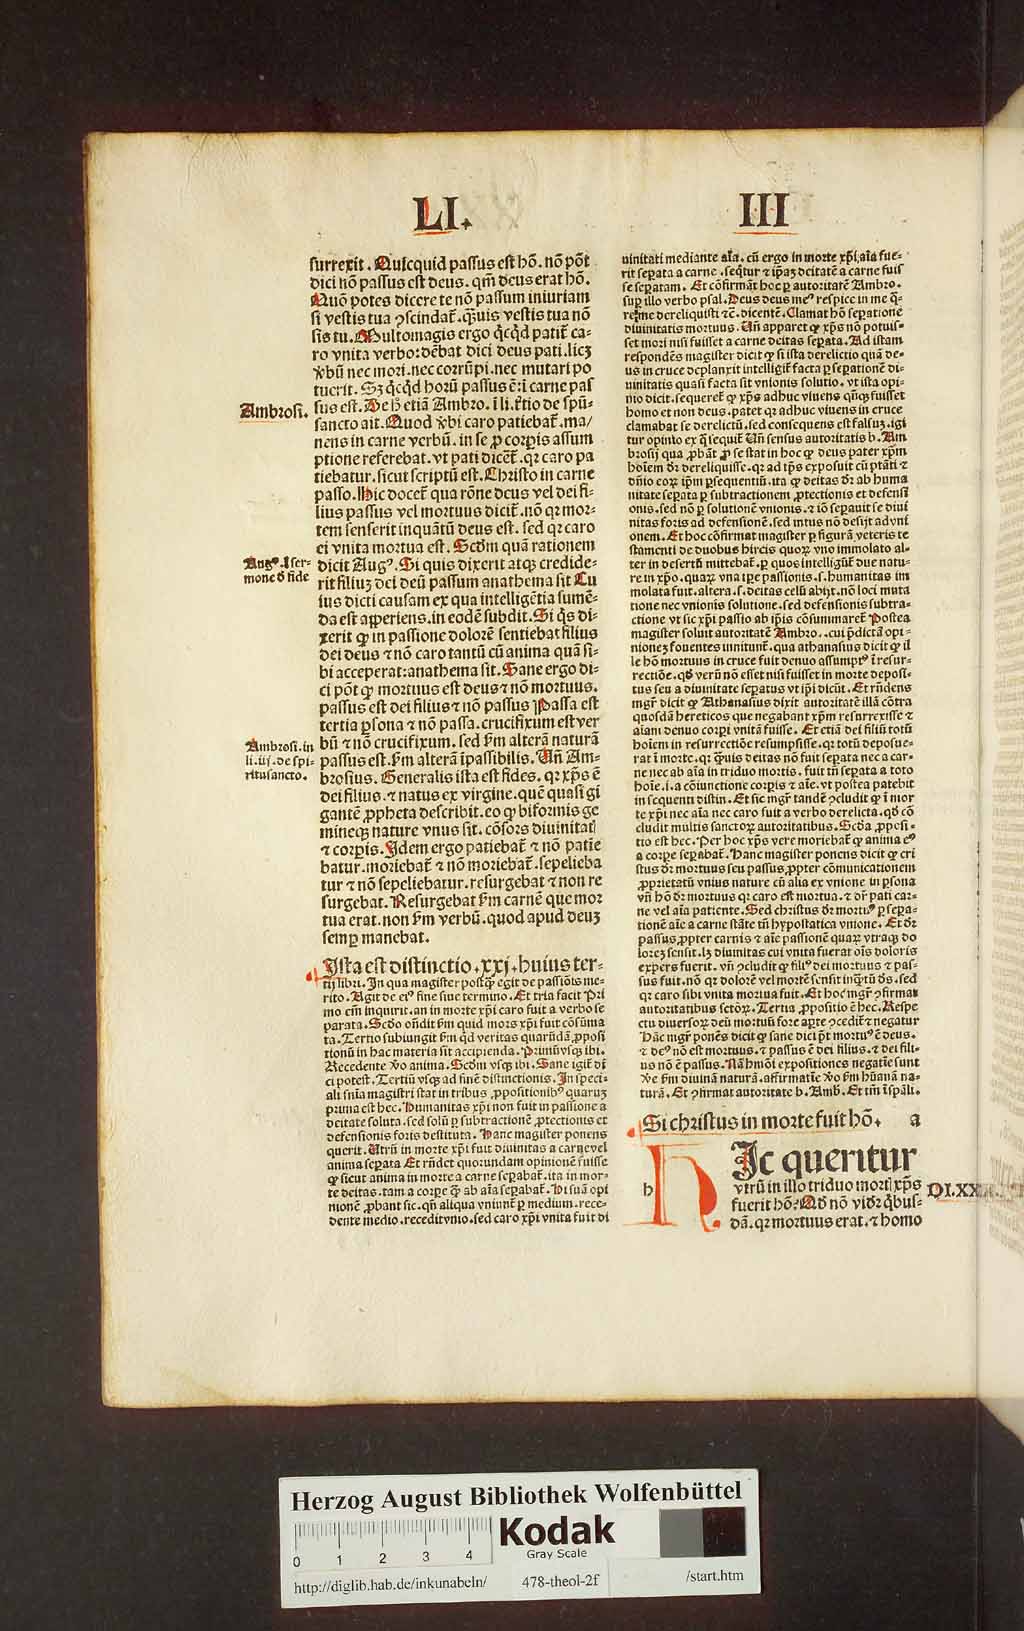 LI.
III
surrexit. Quicquid passus est hō. nō pōt
dici nō passus est deus. qm̄ deus erat hō.
Quō potes dicere te nō passum iniuriam
si vestis tua ꝯscindat᷑. qͣuis vestis tua nō
sis tu. Multomagis ergo qͥcqͥd patit᷑ ca-
ro vnita verbo: dēbat dici deus pati. licꝫ
v̄bū nec mori. nec corrūpi. nec mutari po
tuerit. Sꝫ qͥcqͥd horū passus ē: ī carne pas
sus est. De hͦ etiā Ambro. ī li. t̄tio de spū-
sancto ait. Quod v̄bi caro patiebat᷑. ma/
nens in carne verbū. in se ꝓ corꝑis assum
ptione referebat. vt pati dicēt᷑. qꝛ caro pa
tiebatur. sicut scriptū est. Christo in carne
passo. Hic docet᷑ qua rōne deus vel dei fi-
lius passus vel mortuus dicit᷑. nō qꝛ mor-
tem senserit inquātū deus est. sed qꝛ caro
ei vnita mortua est. Scd̄m quā rationem
dicit Augꝰ. Si quis dixerit atqꝫ credide-
rit filiuꝫ dei deū passum anathema sit Cu
ius dicti causam ex qua intelligētia sumē-
da est aꝑeriens. in eodē subdit. Si qͥs di-
xerit ꝙ in passione dolorē sentiebat filius
dei deus ⁊ nō caro tantū cū anima quā si-
bi acceperat: anathema sit. Sane ergo di-
ci pōt ꝙ mortuus est deus ⁊ nō mortuus.
passus est dei filius ⁊ nō passus Passa est
tertia ꝑsona ⁊ nō passa. crucifixum est ver
bū ⁊ nō crucifixum. sed ẜm alterā naturā
passus est. ẜm alterā īpassibilis. Un̄ Am-
brosius. Generalis ista est fides. qꝛ xp̄s ē
dei filius. ⁊ natus ex virgine. quē quasi gi
gantē ꝓpheta describit. eo ꝙ biformis ge
mineqꝫ nature vnus sit. cōsors diuinitatꝭ
⁊ corꝑis. Idem ergo patiebat᷑ ⁊ nō patie
batur. moriebat᷑ ⁊ nō moriebat᷑. sepelieba
tur ⁊ nō sepeliebatur. resurgebat ⁊ non re
surgebat. Resurgebat ẜm carnē que mor
tua erat. non ẜm verbū. quod apud deuꝫ
semꝑ manebat.
Ista est distinctio .xxj. huius ter-
tij libri. In qua magister postqͣꝫ egit de passiōis me-
rito. Agit de eiꝰ fine siue termino. Et tria facit Pri
mo em̄ inquirit. an in morte xp̄i caro fuit a verbo se
parata. Scd̄o on̄dit ẜm quid mors xp̄i fuit cōsūma
ta. Tertio subiungit ẜm qͥd veritas quarūdā ꝓposi
tionū in hac materia sit accipienda. Primū vsqꝫ ibi.
Recedente v̄o anima. Scd̄m vsqꝫ ibi. Sane igit᷑ di
ci potest. Tertiū vsqꝫ ad finē distinctionis. In speci-
ali sn̄ia magistri stat in tribus ꝓpositionibꝰ quaruꝫ
prima est hec. Humanitas xp̄i non fuit in passione a
deitate soluta. sed solū ꝑ subtractionē ꝓtectionis et
defensionis foris destituta. Hanc magister ponens
querit. Utrū in morte xp̄i fuit diuinitas a carne vel
anima seꝑata Et rn̄det quorundam opinionē fuisse
ꝙ sicut anima in morte a carne seꝑabat᷑. ita in mor-
te deitas. tam a corꝑe qͣꝫ ab aīa seꝑabat᷑. Hi suā opi
nionē ꝓbant sic. qn̄ aliqua vniunt᷑ ꝑ medium. rece-
dente medio. recedit vnio. sed caro xp̄i vnita fuit di
Ambrosi.
Augꝰ. ī ser-
mone d̄ fide
Ambrosi. in
li. iij. de spi-
ritusancto.
uinitati mediante aīa. cū ergo in morte xp̄i, aīa fue-
rit seꝑata a carne. seqͥtur ⁊ ip̄aꝫ deitatē a carne fuis
se seꝑatam. Et cōfirmat᷑ hoc ꝑ autoritatē Ambro.
suꝑ illo verbo psal. Deus deus meꝰ respice in me qͣ-
re me dereliquisti ⁊c̄. dicentē. Clamat hō seꝑatione
diuinitatis mortuus. Un̄ apparet ꝙ xp̄s nō potuis-
set mori nisi fuisset a carne deitas seꝑata. Ad istam
respondēs magister dicit ꝙ si ista derelictio quā de-
us in cruce deplanxit intelligit᷑ facta ꝑ seꝑationē di-
uinitatis quasi facta sit vnionis solutio. vt ista opi-
nio dicit. sequeret᷑ ꝙ xp̄s adhuc viuens qn̄qꝫ fuisset
homo et non deus. patet qꝛ adhuc viuens in cruce
clamabat se derelictū. sed consequens est falsuꝫ. igi
tur opinio ex qͣ sequit᷑ Un̄ sensus autoritatis b. Am
brosij qua ꝓbāt ꝓ se stat in hoc ꝙ deus pater xp̄m
hoīem dr̄ dereliquisse. qꝛ ad tp̄s exposuit cū ptāti ⁊
dn̄io eoꝝ ip̄m ꝑsequentiū. ita ꝙ deitas dr̄ ab huma
nitate seꝑata ꝑ subtractionem ꝓtectionis et defensi
onis. sed nō ꝑ solutionē vnionis. ⁊ iō seꝑauit se diui
nitas foris ad defensionē. sed intus nō desijt ad vni
onem. Et hoc cōfirmat magister ꝑ figurā veteris te
stamenti de duobus hircis quoꝝ vno immolato al-
ter in desertū mittebat᷑. ꝑ quos intelligūt᷑ due natu-
re in xp̄o. quaꝝ vna tꝑe passionis .s. humanitas im
molata fuit. altera .s. deitas celū abijt. nō loci muta
tione nec vnionis solutione. sed defensionis subtra-
ctione vt sic xp̄i passio ab ip̄is cōsummaret᷑ Postea
magister soluit autoritatē Ambro.. cui p̄dictā opi-
nioneꝫ fouentes innitunt᷑. qua athanasius dicit ꝙ il
le hō mortuus in cruce fuit denuo assumptꝰ ī resur-
rectiōe. qd̄ verū nō esset nisi fuisset in morte deposi-
tus seu a diuinitate seꝑatus vt ip̄i dicūt. Et rn̄dens
mgr̄ dicit ꝙ Athanasius dixit autoritatē illā cōtra
quosdā hereticos que negabant xp̄m resurrexisse ⁊
aīam denuo corꝑi vnitā fuisse. Et etiā dei filiū totū
hoīem in resurrectiōe resumpsisse. qꝛ totū deposue-
rat ī morte. qꝛ qͣuis deitas nō fuit seꝑata nec a car-
ne nec ab aīa in triduo mortis. fuit tn̄ seꝑata a toto
hoīe. i. a cōiunctione corꝑis ⁊ aīe. vt postea patebit
in sequenti distin. Et sic mgr̄ tandē ꝯcludit ꝙ ī mor
te xp̄i nec aīa nec caro fuit a verbo derelicta. qd̄ cō
cludit multis sanctoꝝ autoritatibus. Scd̄a ꝓposi-
tio est hec. Per hoc xp̄s vere moriebat᷑ ꝙ anima eiꝰ
a corꝑe seꝑabat᷑. Hanc magister ponens dicit ꝙ cri
stus dr̄ mortuus seu passus ꝓpter cōmunicationem
ꝓprietatū vnius nature cū alia ex vnione in ꝑsona
vn̄ hō dr̄ mortuus qꝛ caro est mortua. ⁊ dr̄ pati car-
ne vel aīa patiente. Sed christus dr̄ mortuꝰ ꝑ seꝑa-
tionē aīe a carne stāte tn̄ hypostatica vnione. Et dr̄
passus ꝓpter carnis ⁊ aīe passionē quaꝝ vtraqꝫ do
loreꝫ sensit. lꝫ diuinitas cui vnita fuerat oīs doloris
expers fuerit. vn̄ ꝯcludit ꝙ filiꝰ dei mortuus ⁊ pas-
sus fuit. nō qꝛ dolorē vel mortē sensit inqͣtū ds̄. sed
qꝛ caro sibi vnita mortua fuit. Et hoc mgr̄ ꝯfirmat
autoritatibus sctōꝝ. Tertia ꝓpositio ē hec. Respe
ctu diuersoꝝ deū mortuū fore aꝑte ꝯcedit᷑ ⁊ negatur
Hāc mgr̄ ponēs dicit ꝙ sane dici pōt mortuꝰ ē deus.
⁊ deꝰ nō est mortuus. ⁊ passus ē dei filius. ⁊ dei fili-
us nō ē passus. Nā hmōi expositiones negatie sunt
v̄e ẜm diuinā naturā. affirmatie v̄o ẜm hūanā na-
turā. Et ꝯfirmat autoritate b. Amb. Et tm̄ ī sp̄ali.
Si christus in morte fuit hō. a
h
Ic queritur
vtrū in illo triduo mortꝭ xp̄s
fuerit hō? Qd̄ nō vidr̄ qͥbus-
dā. qꝛ mortuus erat. ⁊ homo
DI.XX
Herzog August Bibliothek Wolfenbüttel
0 1 2 3 4
Kodak
Gray Scale
http://diglib.hab.de/inkunabeln/ 478-theol-2f /start.htm